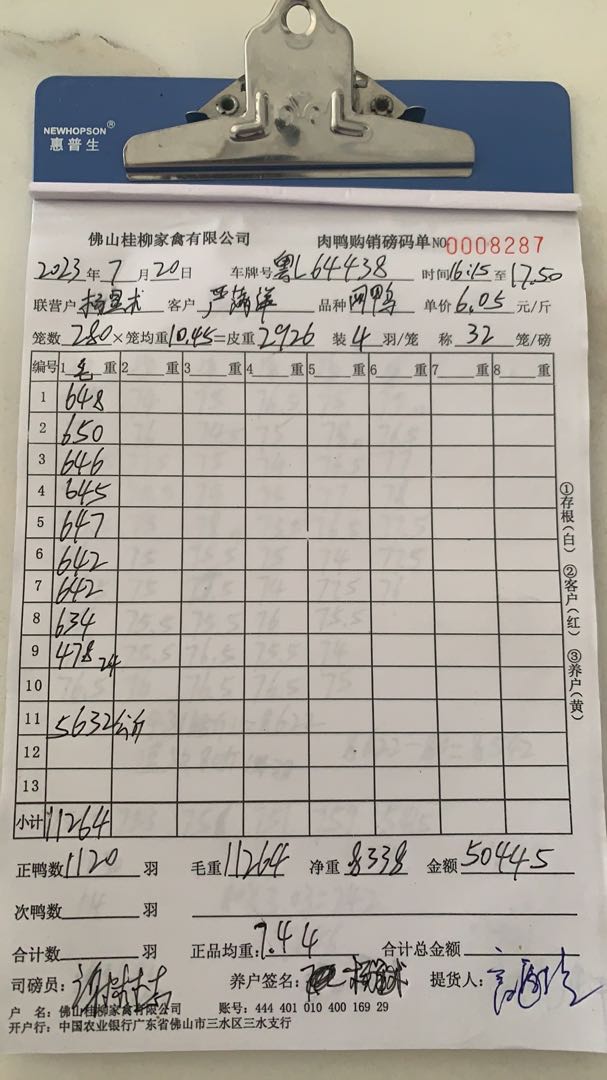 NEWHOPSON®
惠普生
佛山桂柳家禽有限公司 肉鸭购销磅码单 NO 0008287
2023年7月20日 车牌号 粤L64438 时间16:15至17.50
联营户 客户 品种 单价6.05元/斤
笼数280×笼均重10.45=皮重2926 装4羽/笼 称32笼/磅
编号 1毛重 2重 3重 4重 5重 6重 7重 8重
1 648
2 650
3 646
4 645
5 647
6 642
7 642
8 634
9 478 24
10
11 5632公斤
12
13
小计 11264
①存根(白) ②客户(红) ③养户(黄)
正鸭数1120羽 毛重11264 净重8338 金额50445
次鸭数 羽
合计数 羽 正品均重:7.44 合计总金额
司磅员: 养户签名: 提货人:
户 名:佛山桂柳家禽有限公司 账号:444 401 010 400 169 29
开户行:中国农业银行广东省佛山市三水区三水支行